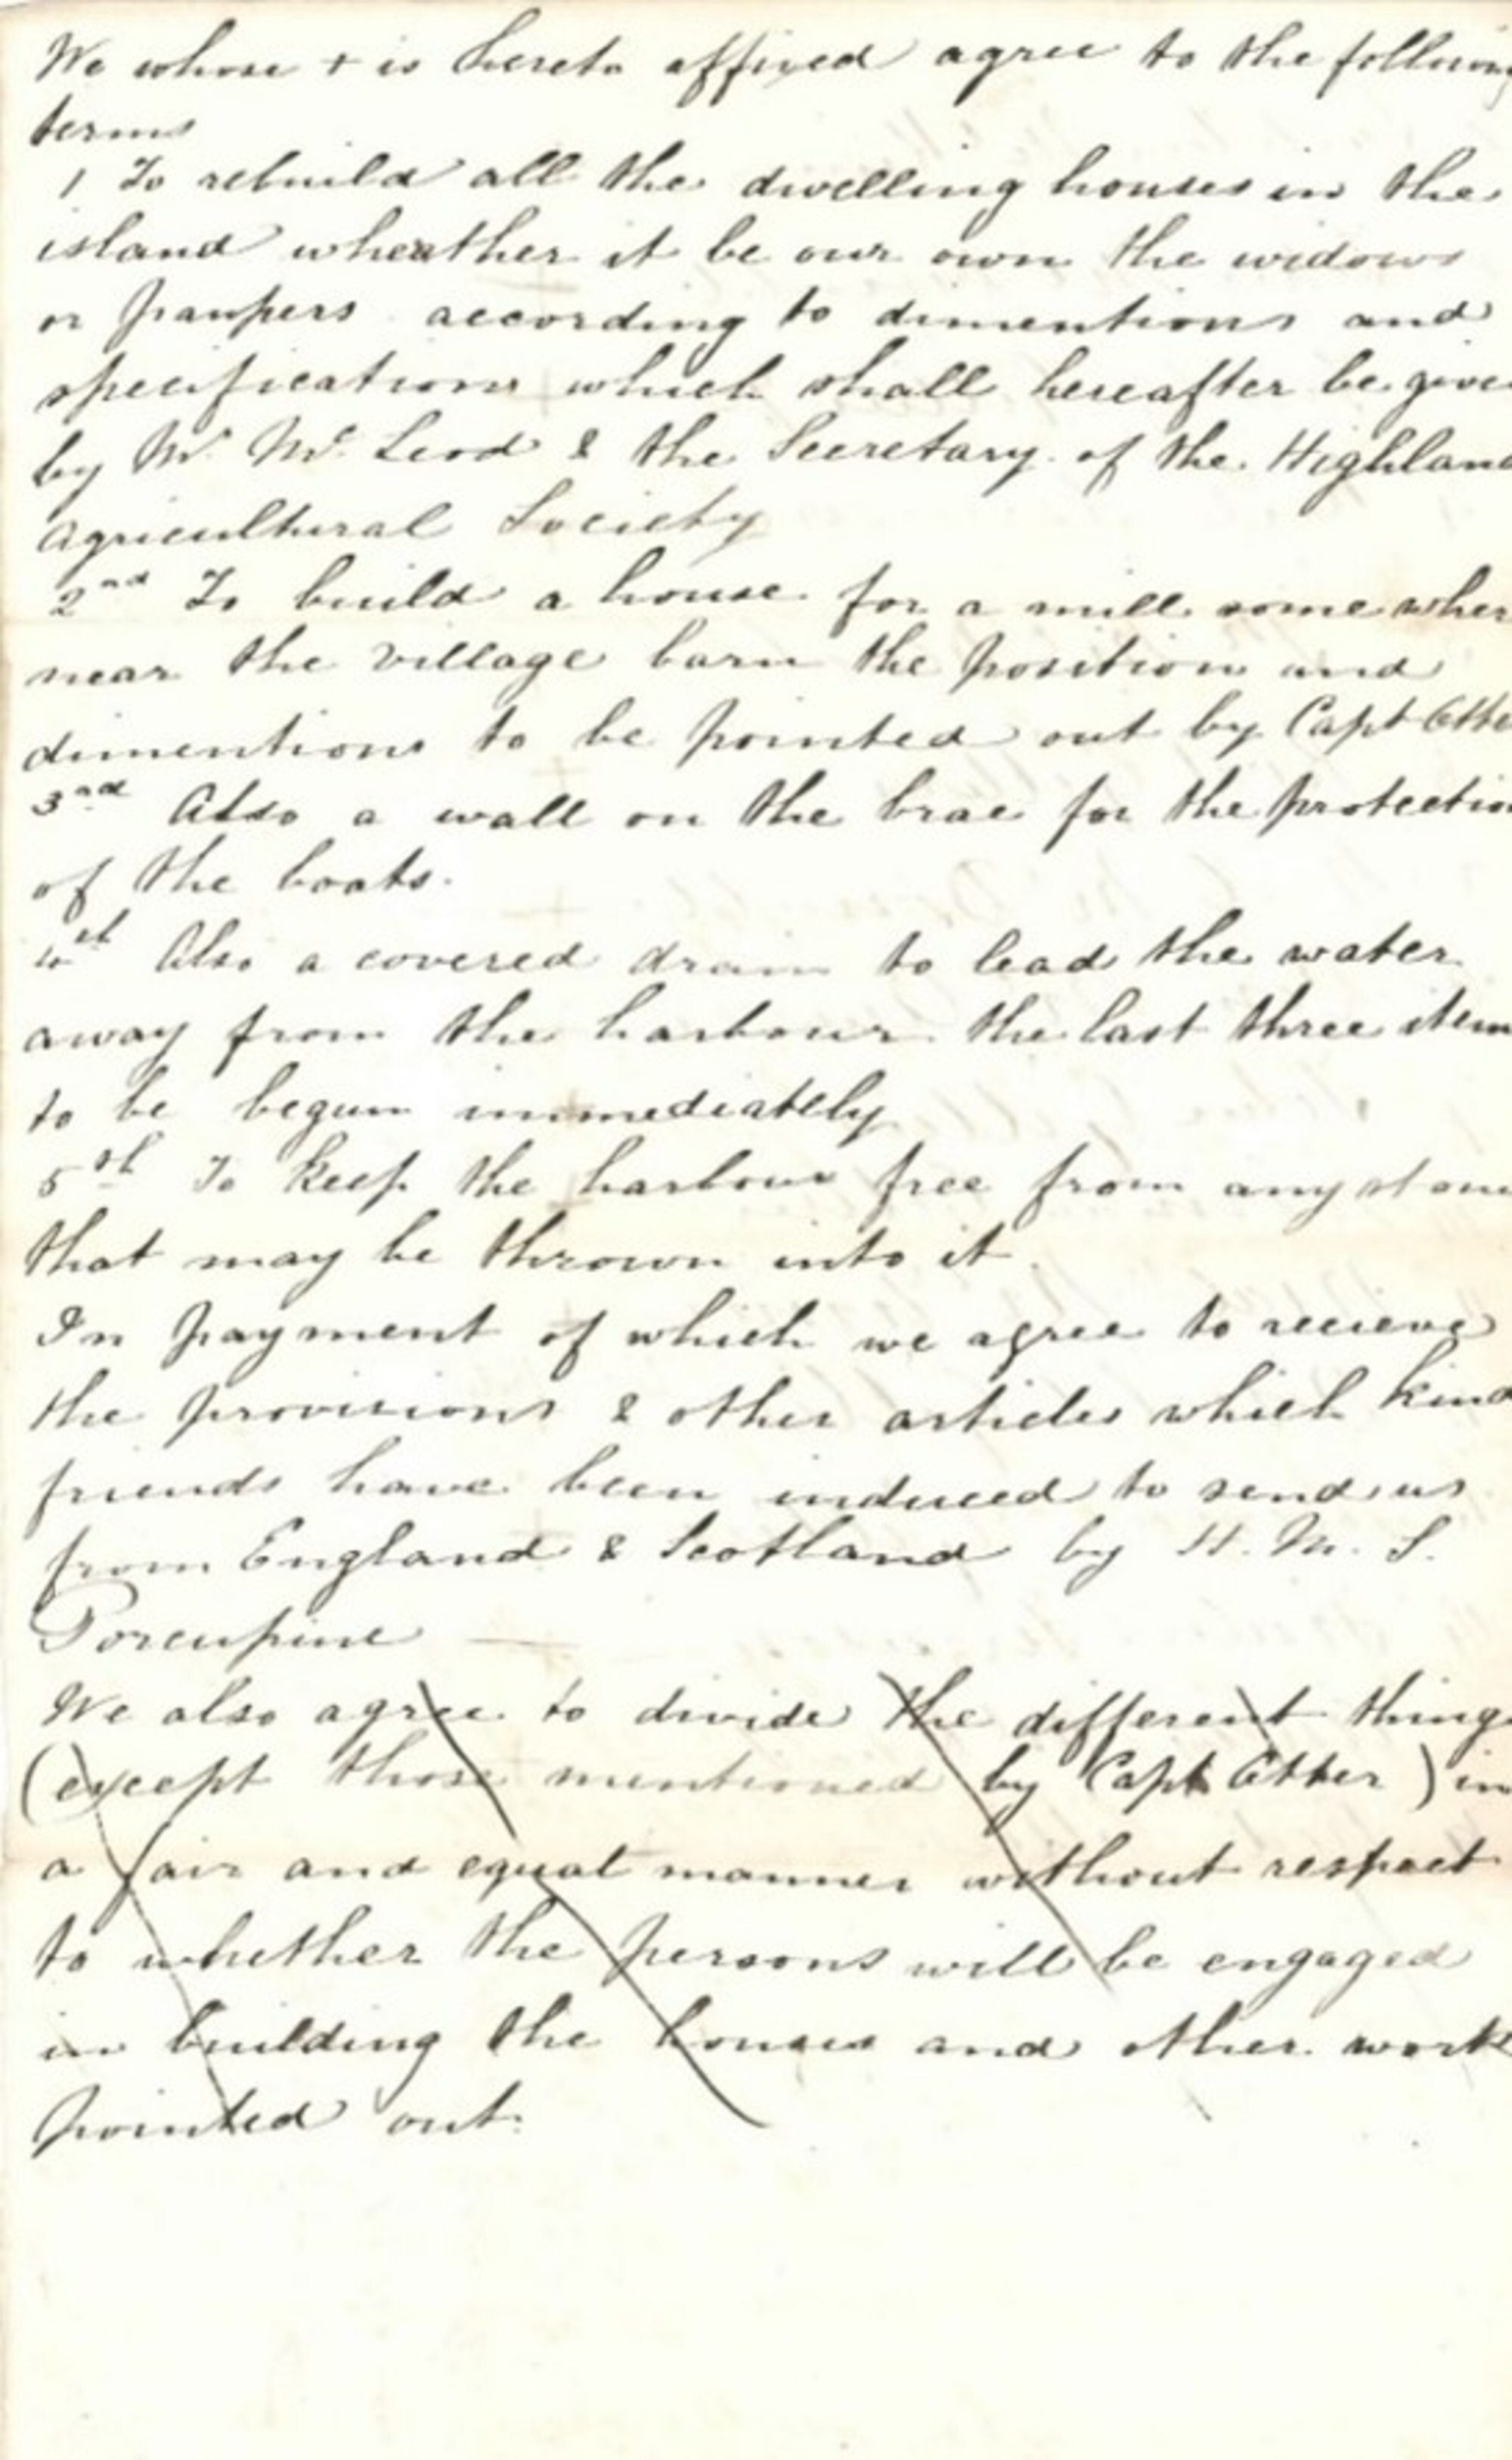 We whose + is hereto affixed agree to the following
terms
1 To rebuild all the dwelling houses in the
island wheather it be our own the widows
or paupers according to dimentions and
specifications which shall hereafter be give
by Mr. Mc. Leod & the Secretary of the Highland
Agricultural Society
2nd To build a house for a mill some wher
near the village barn the position and
dimentions to be pointed out by Capt Otte
3rd Also a wall on the brae for the protectio
of the boats.
4th Also a covered drain to lead the water
away from the harbour the last three item
to be begun immediately
5th To keep the harbour free from any stone
that may be thrown into it.
In payment of which we agree to recieve
the provisions & other articles which kind
friends have been induced to send us
from England & Scotland by H. M. S.
Porcupine
We also agree to divide the different thing
(except those mentioned by Capt Otter) in
a fair and equal manner without respect
to whether the persons will be engaged
in building the houses and other work
pointed out.